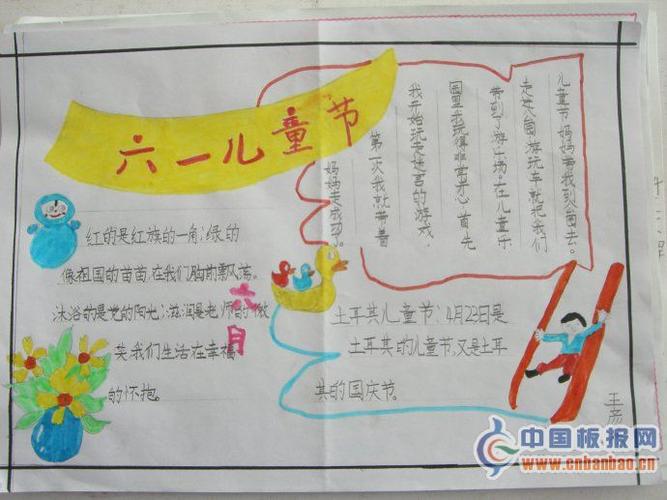 六一儿童节
儿童节妈妈带我到公园去。
走进公园,游玩车就把我们
带到了游乐场。在儿童乐
园里我玩得非常开心首先
我开始玩走迷宫的游戏
第一次我就带着
妈妈走成功了。
红的是红族的一角;绿的
像祖国的苗苗,在我们胸前飘荡。
沐浴的是党的阳光;滋润是老师的微
笑我们生活在幸福
的怀抱。
六月
土耳其儿童节:4月23日是
土耳其的儿童节,又是土耳
其的国庆节。
王彦
中国板报网
www.cnbanbao.cn